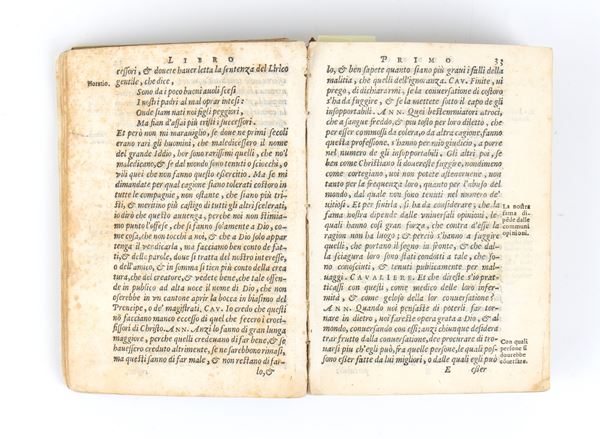 LIBRO
cessori, & douere hauer letta la sentenza del Lirico
Horatio.
gentile, che dice,
Sono da i poco buoni auoli scesi
I nostri padri al mal oprar intesi:
Onde siam nati noi figli peggiori,
Ma fian d'assai più tristi i successori.
Et però non mi marauiglio, se doue ne primi secoli
erano rari gli huomini, che maledicessero il nome
del grande Iddio, hor sono rarissimi quelli, che nō'l
maledicano, & se dal mondo sono tenuti ò sciocchi, o
vili quei che non fanno questo esercitio. Ma se mi
dimandate per qual cagione siano tolerati costoro in
tutte le compagnie, non ostante, che siano più tri-
sti, & meritino più castigo di tutti gli altri scelerati,
io dirò che questo auuenga, perche noi non stimia-
mo punto l'offese, che si fanno solamente a Dio, co-
me cosa, che non tocchi a noi, & che a Dio solo appar
tenga il vendicarla, ma facciamo ben conto de fat-
ti, & delle parole, doue si tratta del nostro interesse,
o dell'amico, & in somma si tien più conto della crea
tura, che del creatore, & vedete bene, che tale offen-
de in publico ad alta voce il nome di Dio, che non
oserebbe in vn cantone aprir la bocca in biasimo del
Prencipe, o de' magistrati. CAV. Io credo che questi
nō facciano manco eccesso di quel che fecero i croci-
fissori di Christo. ANN. Anzi lo fanno di gran lunga
maggiore, perche quelli credeuano di far bene, & se
hauessero creduto altrimente, se ne sarebbono rimasi,
ma questi sanno di far male, & non restano di far-
lo, &
PRIMO 33
lo, & ben sapete quanto siano più graui i falli della
malitia, che quelli dell'ignoranza. CAV. Finite, vi
prego, di dichiararmi, se la conuersatione di costoro
s'ha da fuggire, & se la mettete sotto il capo de gli
insopportabili. ANN. Quei bestemmiatori atroci,
che a sangue freddo, & piu tosto per loro diletto, che
per esser commossi da colera, o da altra cagione, fanno
questa professione, s'hanno per mio giudicio, a porre
nel numero de gli insopportabili. Gli altri poi, se
ben come Christiano li doureste fuggire, nondimeno
come cortegiano, uoi non potete astenerueni, non
tanto per la frequenza loro, quanto per l'abuso del
mondo, dal quale non sono tenuti nel numero de'
vitiosi. Et per finirla, si ha da considerare, che la
fama nostra dipende dalle vniuersali opinioni, le
quali hanno così gran forza, che contra d'esse la
ragion non ha luogo; & perciò s'hanno a fuggire
quelli, che portano il segno in fronte, & che dal-
la sciagura loro sono stati condotti a tale, che so-
no conosciuti, & tenuti publicamente per mal-
uaggi. CAVALIERE. Et che direste s'io prati-
cassi con questi, come medico delle loro infer-
mità, & come geloso della lor conuersatione?
ANN. Quando voi pensaste di poterli far tor-
nare in dietro, uoi fareste opera grata a Dio, & al
mondo, conuersando con essi; anzi chiunque desidera
trar frutto dalla conuersatione, dee procurare di tro-
uarsi piu ch'egli può, fra quelle persone, le quali pos-
sono esser fatte da lui migliori, o dalle quali egli può
E esser
La nostra
fama di-
pēde dalle
communi
opinioni.
Con quali
persone si
dourebbe
cōuersare.